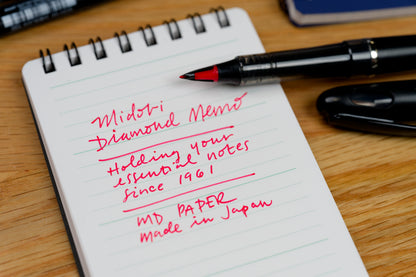 Midori
Diamond Memo
Holding your
essential notes
since 1961
MD PAPER
Made in Japan